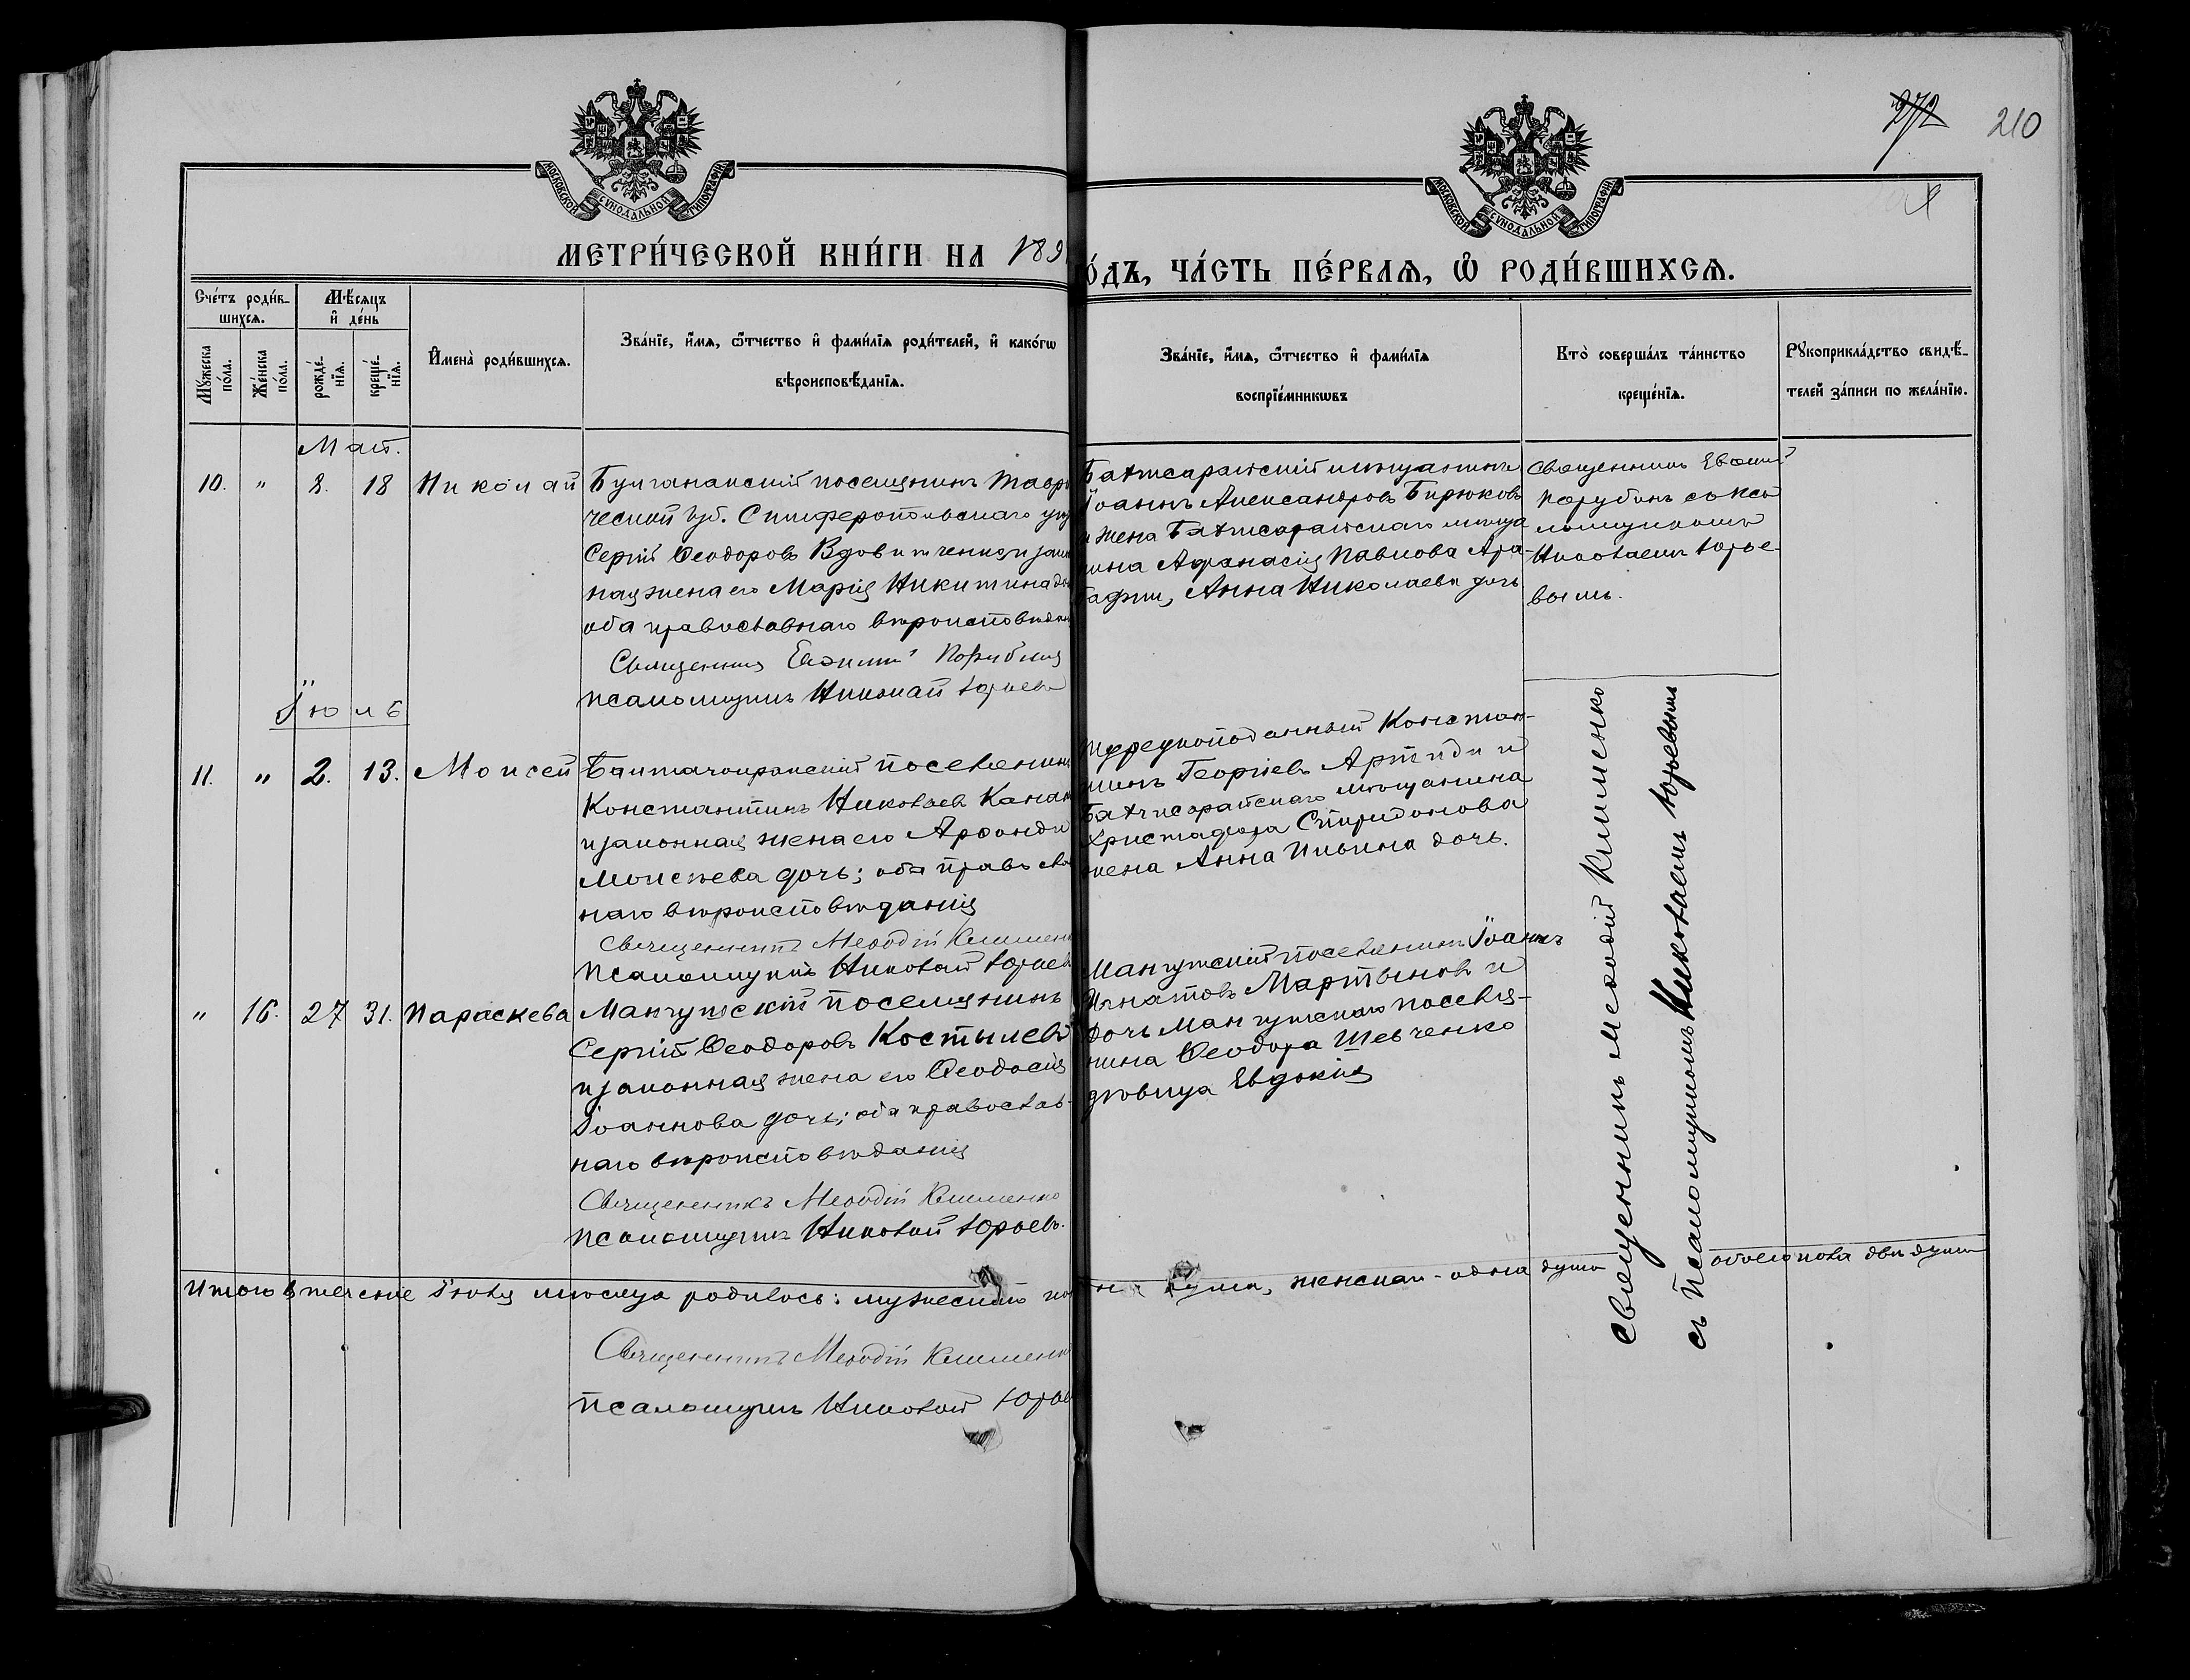 272 210
МОСКОВСКОЙ СѴНОДАЛЬНОЙ ТИПОГРАФІИ
МОСКОВСКОЙ СѴНОДАЛЬНОЙ ТИПОГРАФІИ
МЕТРИ́ЧЕСКОЙ КНИ́ГИ НА 189
О́ДЪ, ЧА́СТЬ ПЕ́РВАѦ, Ѡ҆ РОДИ́ВШИХСѦ.
Сче́тъ роди́в-
шихсѧ.
Мѣ́сѧцъ
и҆ де́нь
Мꙋ́жеска
по́ла.
Же́нска
по́ла.
рожде́-
нїѧ.
креще́-
нїѧ.
И҆мена̀ роди́вшихсѧ.
Зва́нїе, и҆́мѧ, ѻ҆́тчество и҆ фами́лїѧ роди́телей, и҆ како́гѡ
вѣроисповѣ́данїѧ.
Зва́нїе, и҆́мѧ, ѻ҆́тчество и҆ фами́лїѧ
воспрїе́мникѡвъ
Кто̀ соверша́лъ та́инство
креще́нїѧ.
Рꙋкоприкла́дство свидѣ́-
телей за́писи по жела́нїю.
Май.
10. " 2. 18 Николай
Булганакскій поселянинъ Таври
ческой губ. Симферопольскаго уѣз
Сергій Ѳеодоровъ Вдовитченко и закон
ная жена его Марія Никитина до
оба православнаго вѣроисповѣдан
Священникъ Евѳимій
псаломщикъ Николай Юрьевъ
Бахчисарайскій мѣщанинъ
Іоаннъ Александровъ Бирюковъ
и жена Бахчисарайскаго мѣща
нина Афанасія Павлова
Анна Николаева дочь
Священникъ Евѳимій
съ пса
ломщикомъ
Николаемъ Юрье-
вымъ.
Іюль
11. " 2. 13. Моисей
поселянинъ
Константинъ Николаевъ
и законная жена его
Моисеева дочь; оба правосла
наго вѣроисповѣданія
Священникъ Меѳодій Клименк
Псаломщикъ Николай Юрьев
Турецкоподанный Констан-
тинъ Георгіевъ и
Бахчисарайскаго мѣщанина
Христофора Спиридонова
жена Анна Ильина дочь.
" 16. 27 31. Параскева
Мангушскій поселянинъ
Сергій Ѳеодоровъ Костылевъ
и законная жена его Ѳеодосія
Іоаннова дочь; оба православ-
наго вѣроисповѣданія
Священникъ Меѳодій Клименко
псаломщикъ Николай Юрьевъ.
Мангушскій поселянинъ Іоаннъ
Игнатовъ Мартыновъ и
дочь Мангушскаго поселя-
нина Ѳеодора Шевченко
дѣвица Евдокія
Священникъ Меѳодій Клименко
съ Псаломщикомъ Николаемъ Юрьевымъ
Итого въ теченіе Іюля мѣсяца родилось: мужескаго по душа, женскаго - одна душа обоего пола двѣ души
Священникъ Меѳодій Клименк
псаломщикъ Николай Юрьев